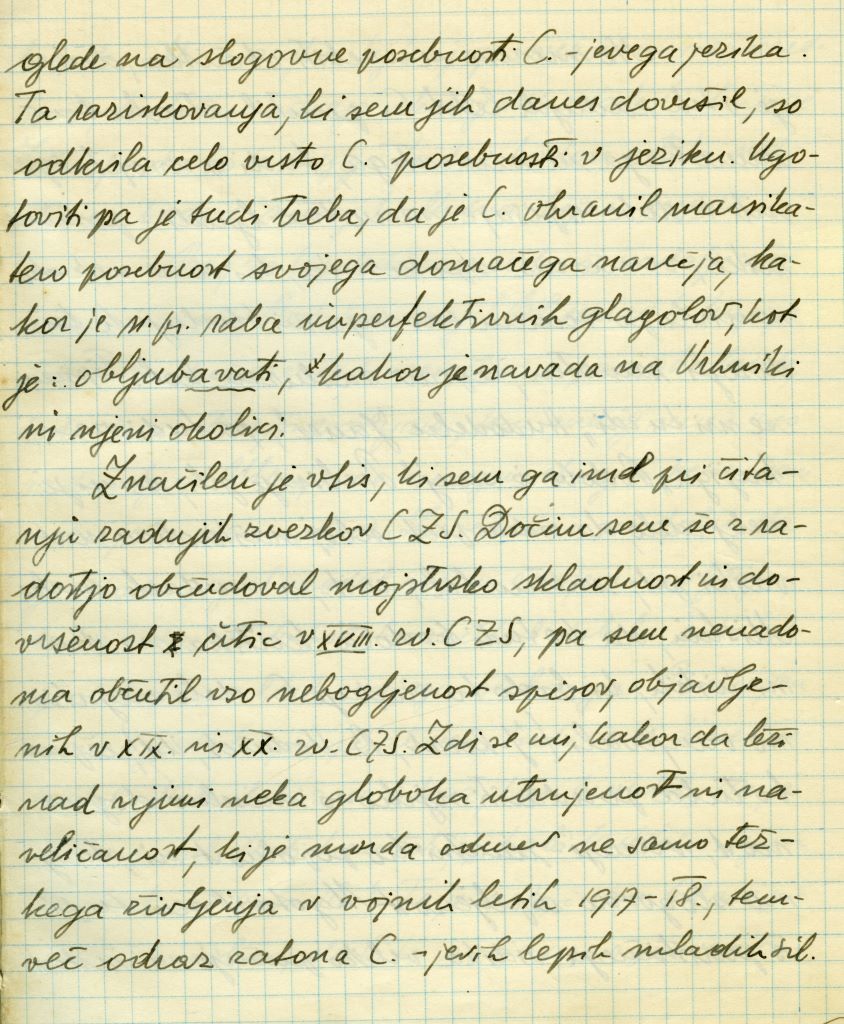 glede na slogovne posebnosti C.-jevega jezika.
Ta raziskovanja, ki sem jih danes dovršil, so
odkrila celo vrsto C. posebnosti v jeziku. Ugo-
toviti pa je tudi treba, da je C. ohranil marsika-
tero posebnost svojega domačega narečja, ka-
kor je n. pr. raba imperfektivnih glagolov, kot
je: obljubavati, kakor je navada na Vrhniki
in njeni okolici.
Značilen je vtis, ki sem ga imel pri čita-
nju zadnjih zvezkov CZS. Dočim sem še z ra-
dostjo občudoval mojstrsko skladnost in do-
vršenost črtic v XVIII. zv. CZS, pa sem nenado-
ma občutil vso nebogljenost spisov, objavlje-
nih v XIX. in XX. zv. CZS. Zdi se mi, kakor da leži
nad njimi neka globoka utrujenost in na-
veličanost, ki je morda odmev ne samo tež-
kega življenja v vojnih letih 1917-18., tem-
več odraz zatona C.-jevih lepih mladih sil.